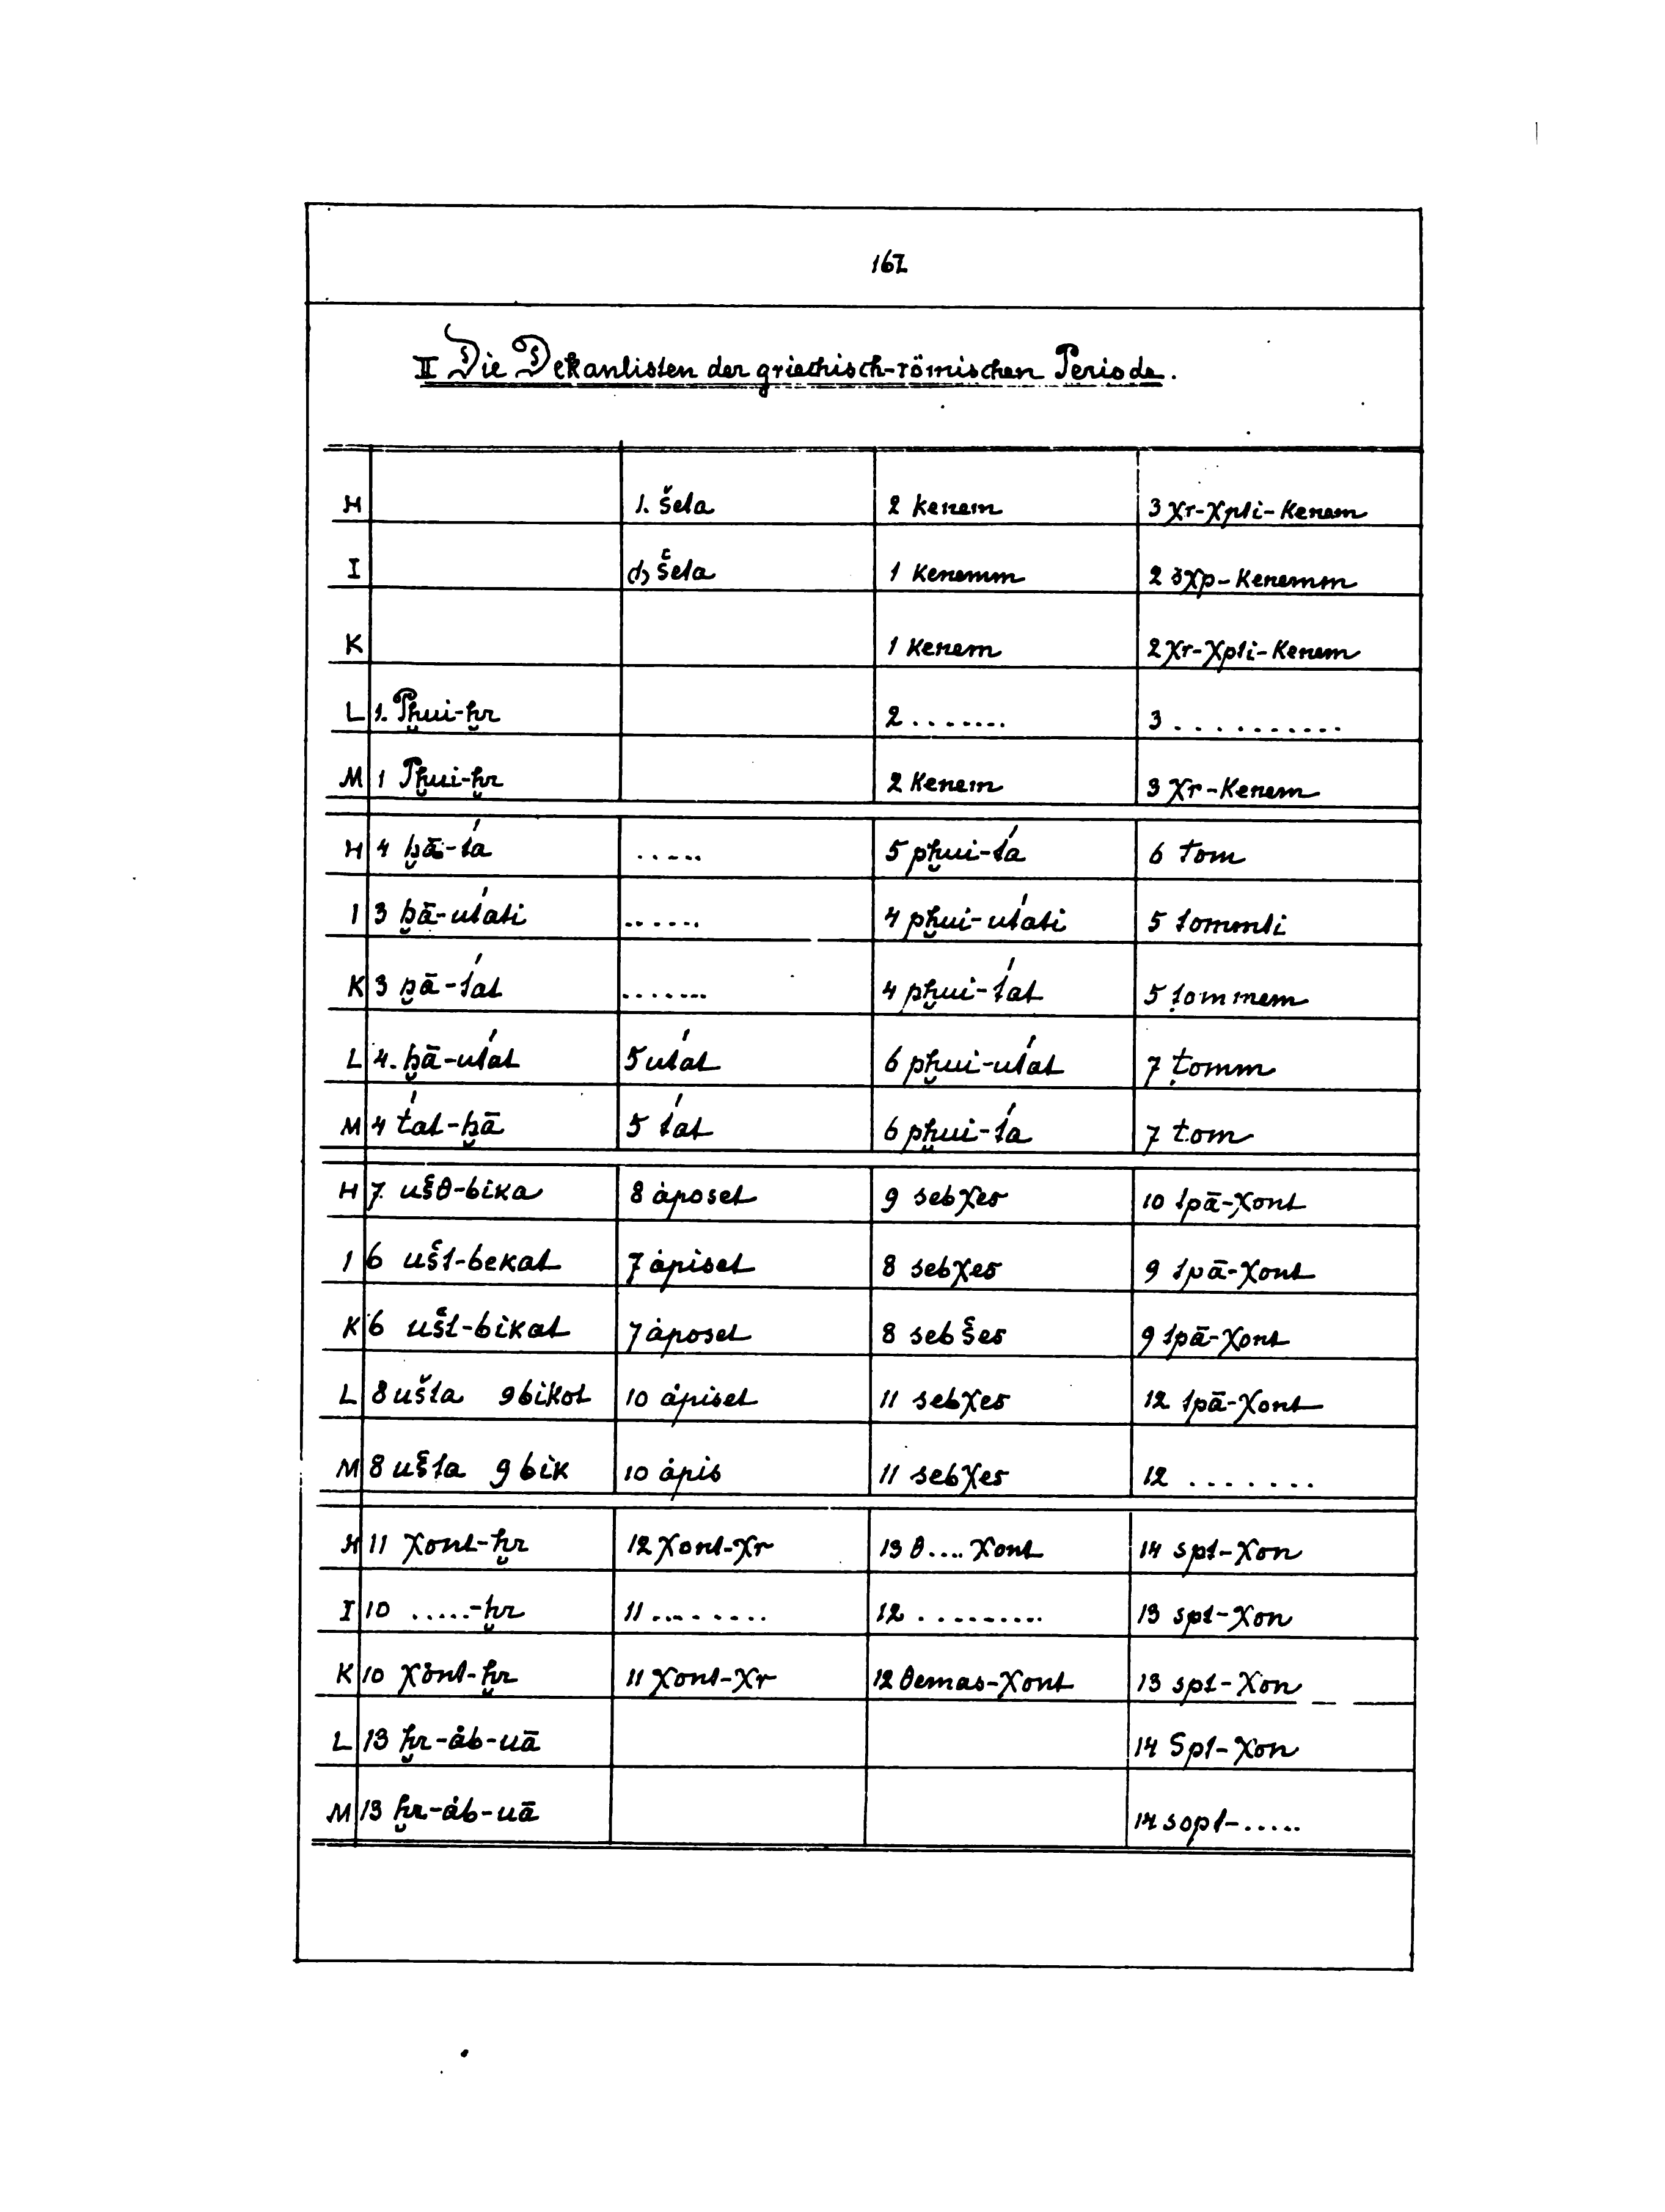 162
II Die Dekanlisten der griechisch-römischen Periode.
H 1. šeta 2 kenem 3 χr-χpti-kenem
I šeta 1 kenemm 2 χp-kenemm
K 1 kenem 2 χr-χpti-kenem
L 1. Pḥui-ḥr 2 ....... 3 ...........
M 1 Pḥui-ḥr 2 kenem 3 χr-kenem
H 4 ḥā-t́a ..... 5 pḥui-t́a 6 tom
I 3 ḥā-ut́ati ...... 4 pḥui-ut́ati 5 tommti
K 3 ḥā-t́at ....... 4 pḥui-t́at 5 ṭommem
L 4. ḥā-ut́at 5 ut́at 6 pḥui-ut́at 7 ṭomm
M 4 t́at-ḥā 5 t́at 6 pḥui-t́a 7 tom
H 7. ušθ-bika 8 ȧposet 9 sebχes 10 tpā-χont
I 6 ušt-bekat 7 ȧpiset 8 sebχes 9 tpā-χont
K 6 ušt-bikat 7 ȧposet 8 sebšes 9 tpā-χont
L 8 ušta 9 bikot 10 ȧpiset 11 sebχes 12 tpā-χont
M 8 ušta 9 bik 10 ȧpis 11 sebχes 12 .......
H 11 χont-ḥr 12 χont-χr 13 θ.... χont 14 spt-χon
I 10 .....-ḥr 11 ........ 12 ......... 13 spt-χon
K 10 χont-ḥr 11 χont-χr 12 θemas-χont 13 spt-χon
L 13 ḥr-ȧb-uā 14 Spt-χon
M 13 ḥr-ȧb-uā 14 sopt-.....